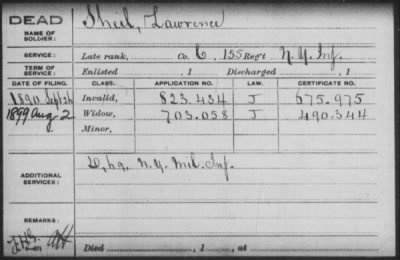 DEAD
NAME OF SOLDIER: Sheil, Lawrence
SERVICE: Late rank, Co. C, 155 Reg't N.Y. Inf.
TERM OF SERVICE: Enlisted , 1 Discharged , 1
DATE OF FILING. CLASS. APPLICATION NO. LAW. CERTIFICATE NO.
1890. Sept 26 Invalid, 823.434 J 675.975
1899 Aug 2 Widow, 703.058 J 490.344
Minor,
ADDITIONAL SERVICES: D, 69, N.Y. Mil. Inf.
REMARKS:
Died , 1 , at